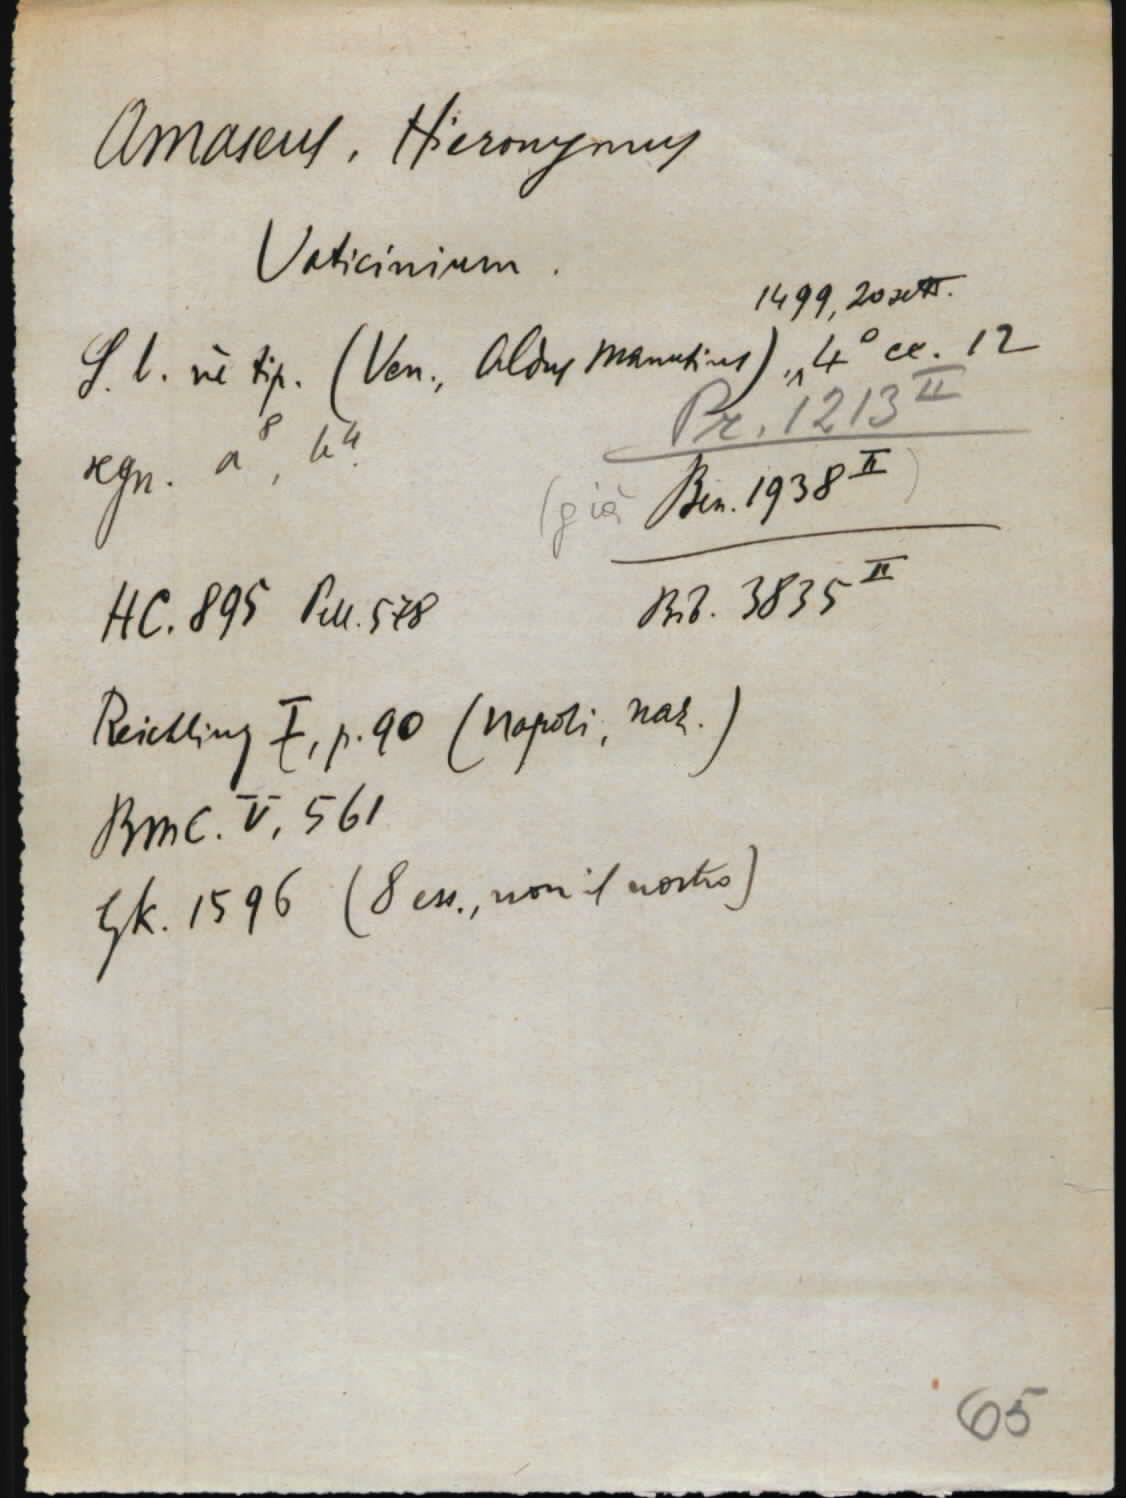 Amaseus, Hieronymus
Vaticinium.
1499, 20 sett.
S. l. nè tip. (Ven., Aldus Manutius), 4° cc. 12
segn. a⁸, b⁴.
Pr. 1213 II
(già Bin. 1938 II)
HC. 895 Pell. 578
Rib. 3835 II
Reichling I, p. 90 (Napoli, naz.)
BMC. V, 561
Gk. 1596 (8 ess., non il nostro)
65